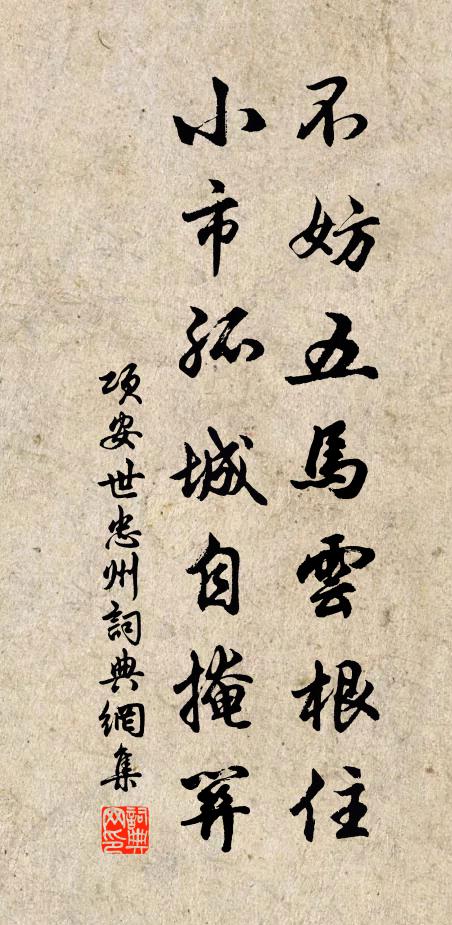 不妨五馬雲根住
小市孤城自掩關
項安世忠州詞典網集
詞典網印